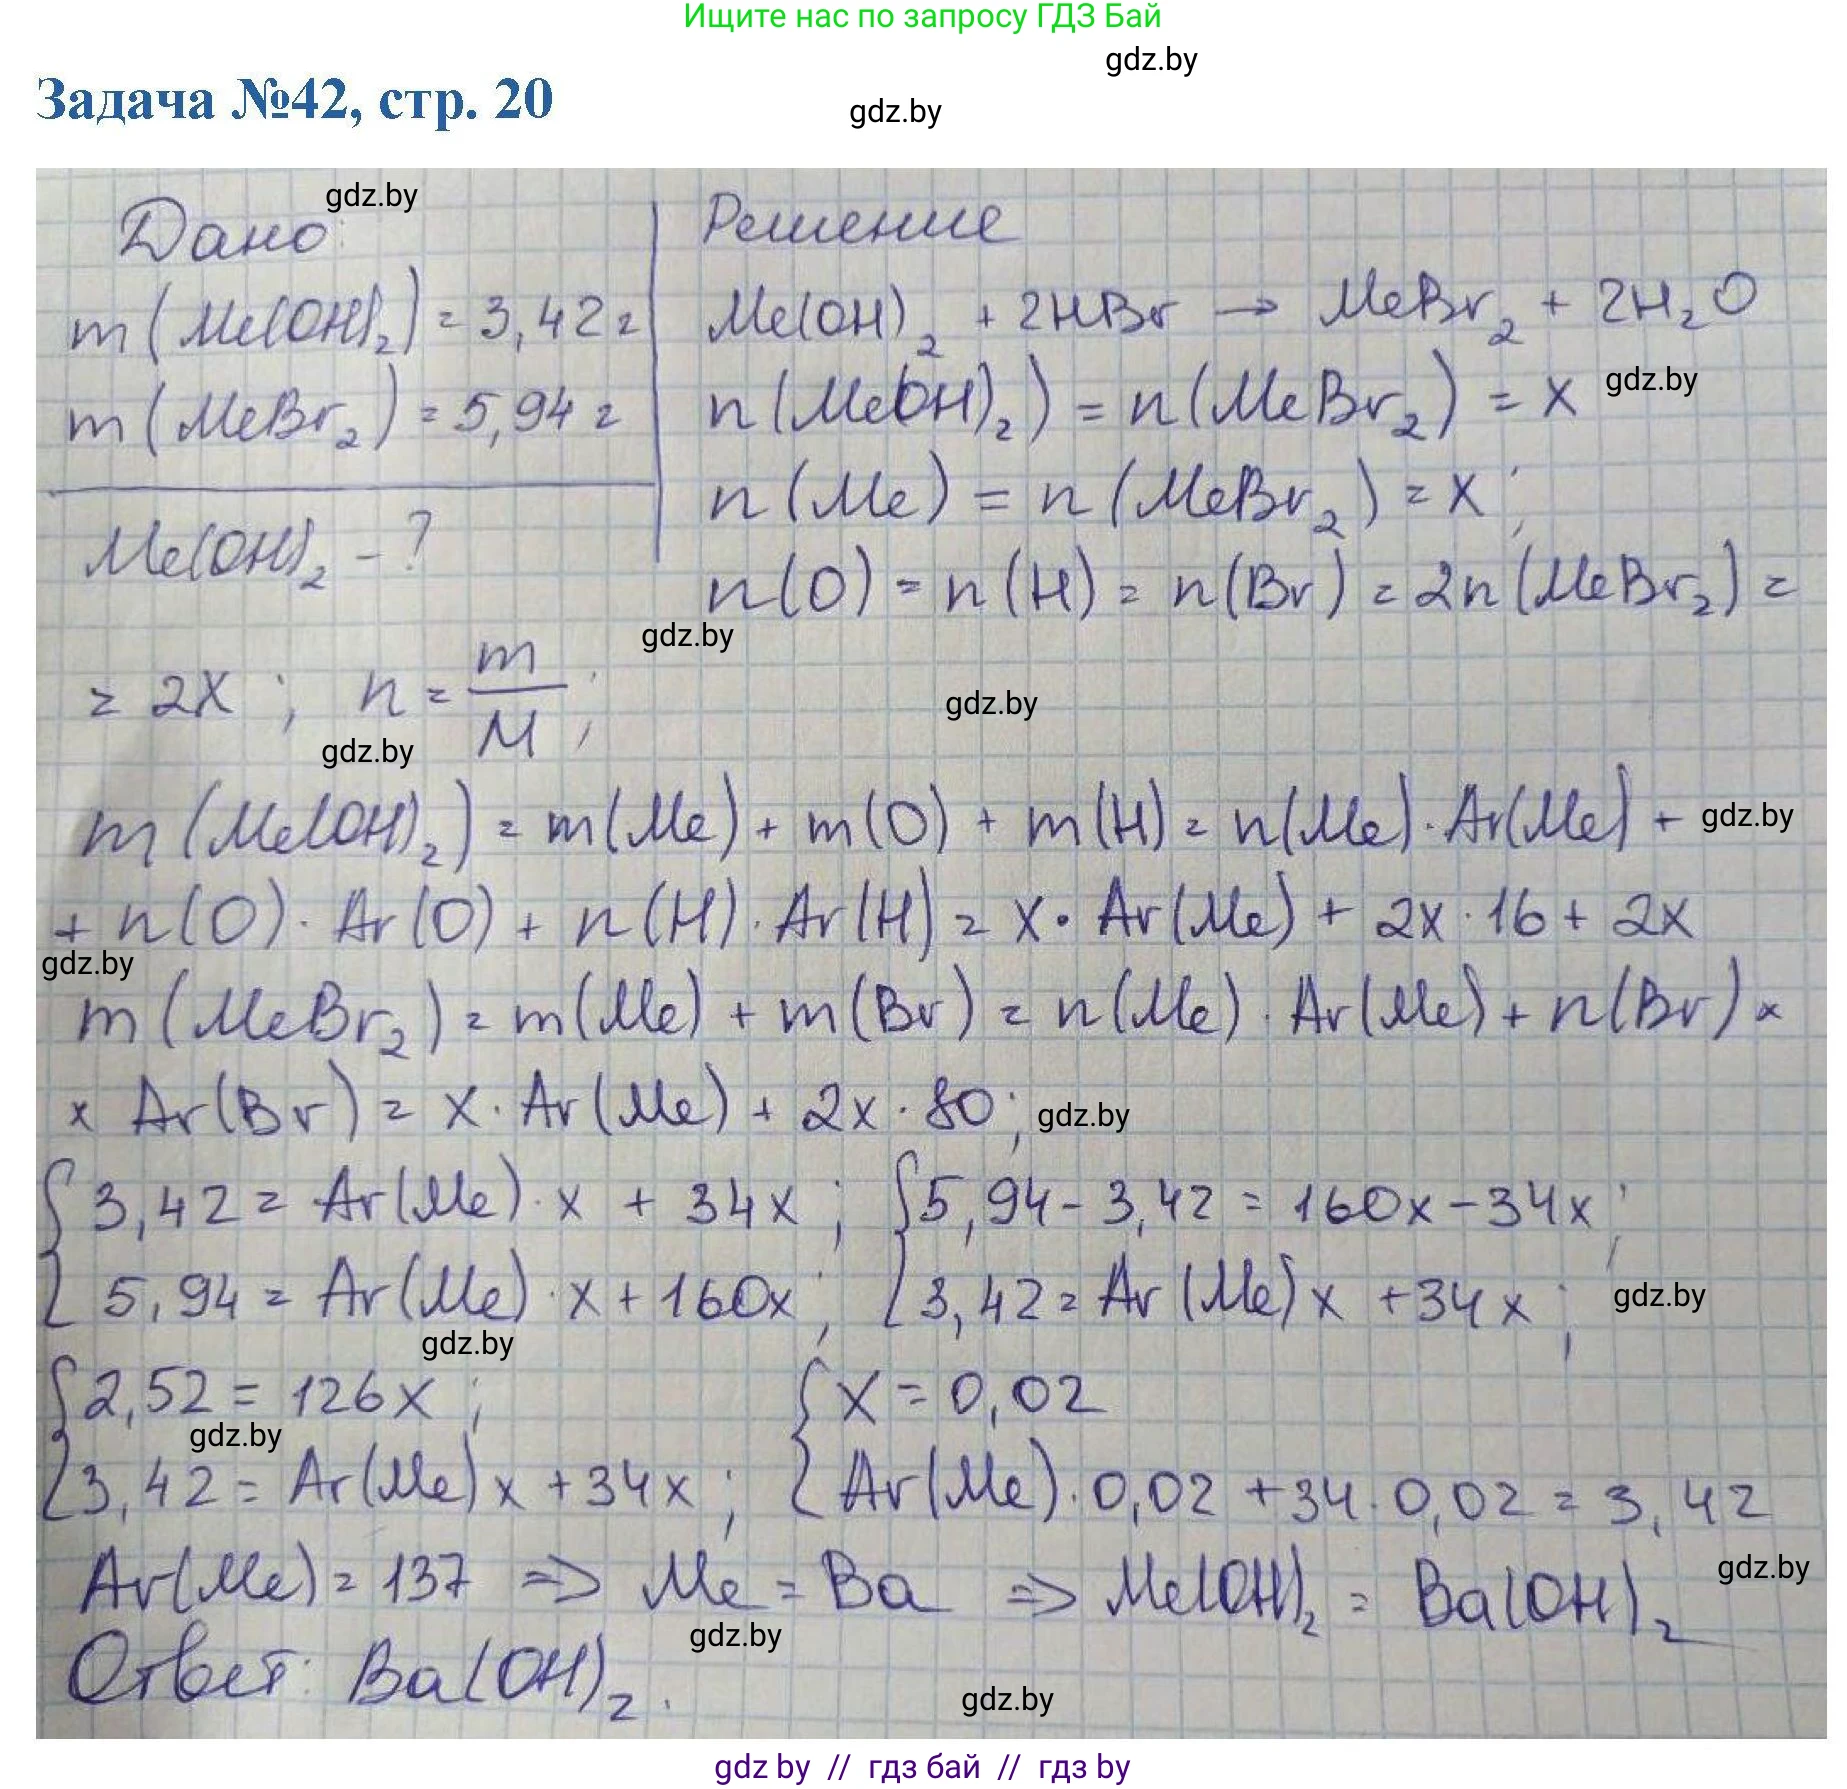 Ищите нас по запросу ГДЗ Бай
gdz.by
Задача №42, стр. 20
gdz.by
gdz.by
Дано:
m(Me(OH)₂) = 3,42 г
m(MeBr₂) = 5,94 г
Me(OH)₂ - ?
Решение
Me(OH)₂ + 2HBr → MeBr₂ + 2H₂O
n(Me(OH)₂) = n(MeBr₂) = x
gdz.by
n(Me) = n(MeBr₂) = x;
n(O) = n(H) = n(Br) = 2n(MeBr₂) =
gdz.by
= 2x; n = m/M;
gdz.by
gdz.by
m(Me(OH)₂) = m(Me) + m(O) + m(H) = n(Me)·Ar(Me) +
gdz.by
+ n(O)·Ar(O) + n(H)·Ar(H) = x·Ar(Me) + 2x·16 + 2x
gdz.by
m(MeBr₂) = m(Me) + m(Br) = n(Me)·Ar(Me) + n(Br) ×
× Ar(Br) = x·Ar(Me) + 2x·80;
gdz.by
{ 3,42 = Ar(Me)·x + 34x; { 5,94 - 3,42 = 160x - 34x;
5,94 = Ar(Me)·x + 160x; 3,42 = Ar(Me)x + 34x;
gdz.by
gdz.by
{ 2,52 = 126x; { x = 0,02
gdz.by
3,42 = Ar(Me)x + 34x; Ar(Me)·0,02 + 34·0,02 = 3,42
Ar(Me) = 137 => Me = Ba => Me(OH)₂ = Ba(OH)₂
gdz.by
gdz.by
Ответ: Ba(OH)₂.
gdz.by
gdz by // гдз бай // гдз by